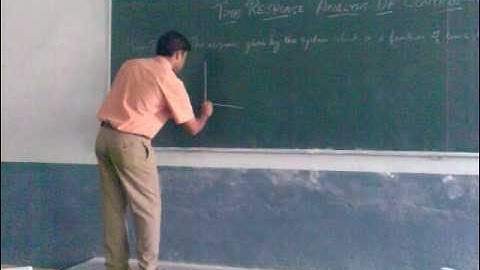 TIME RESPONSE ANALYSIS OF CONTROL
The response given by the system which is a function of time